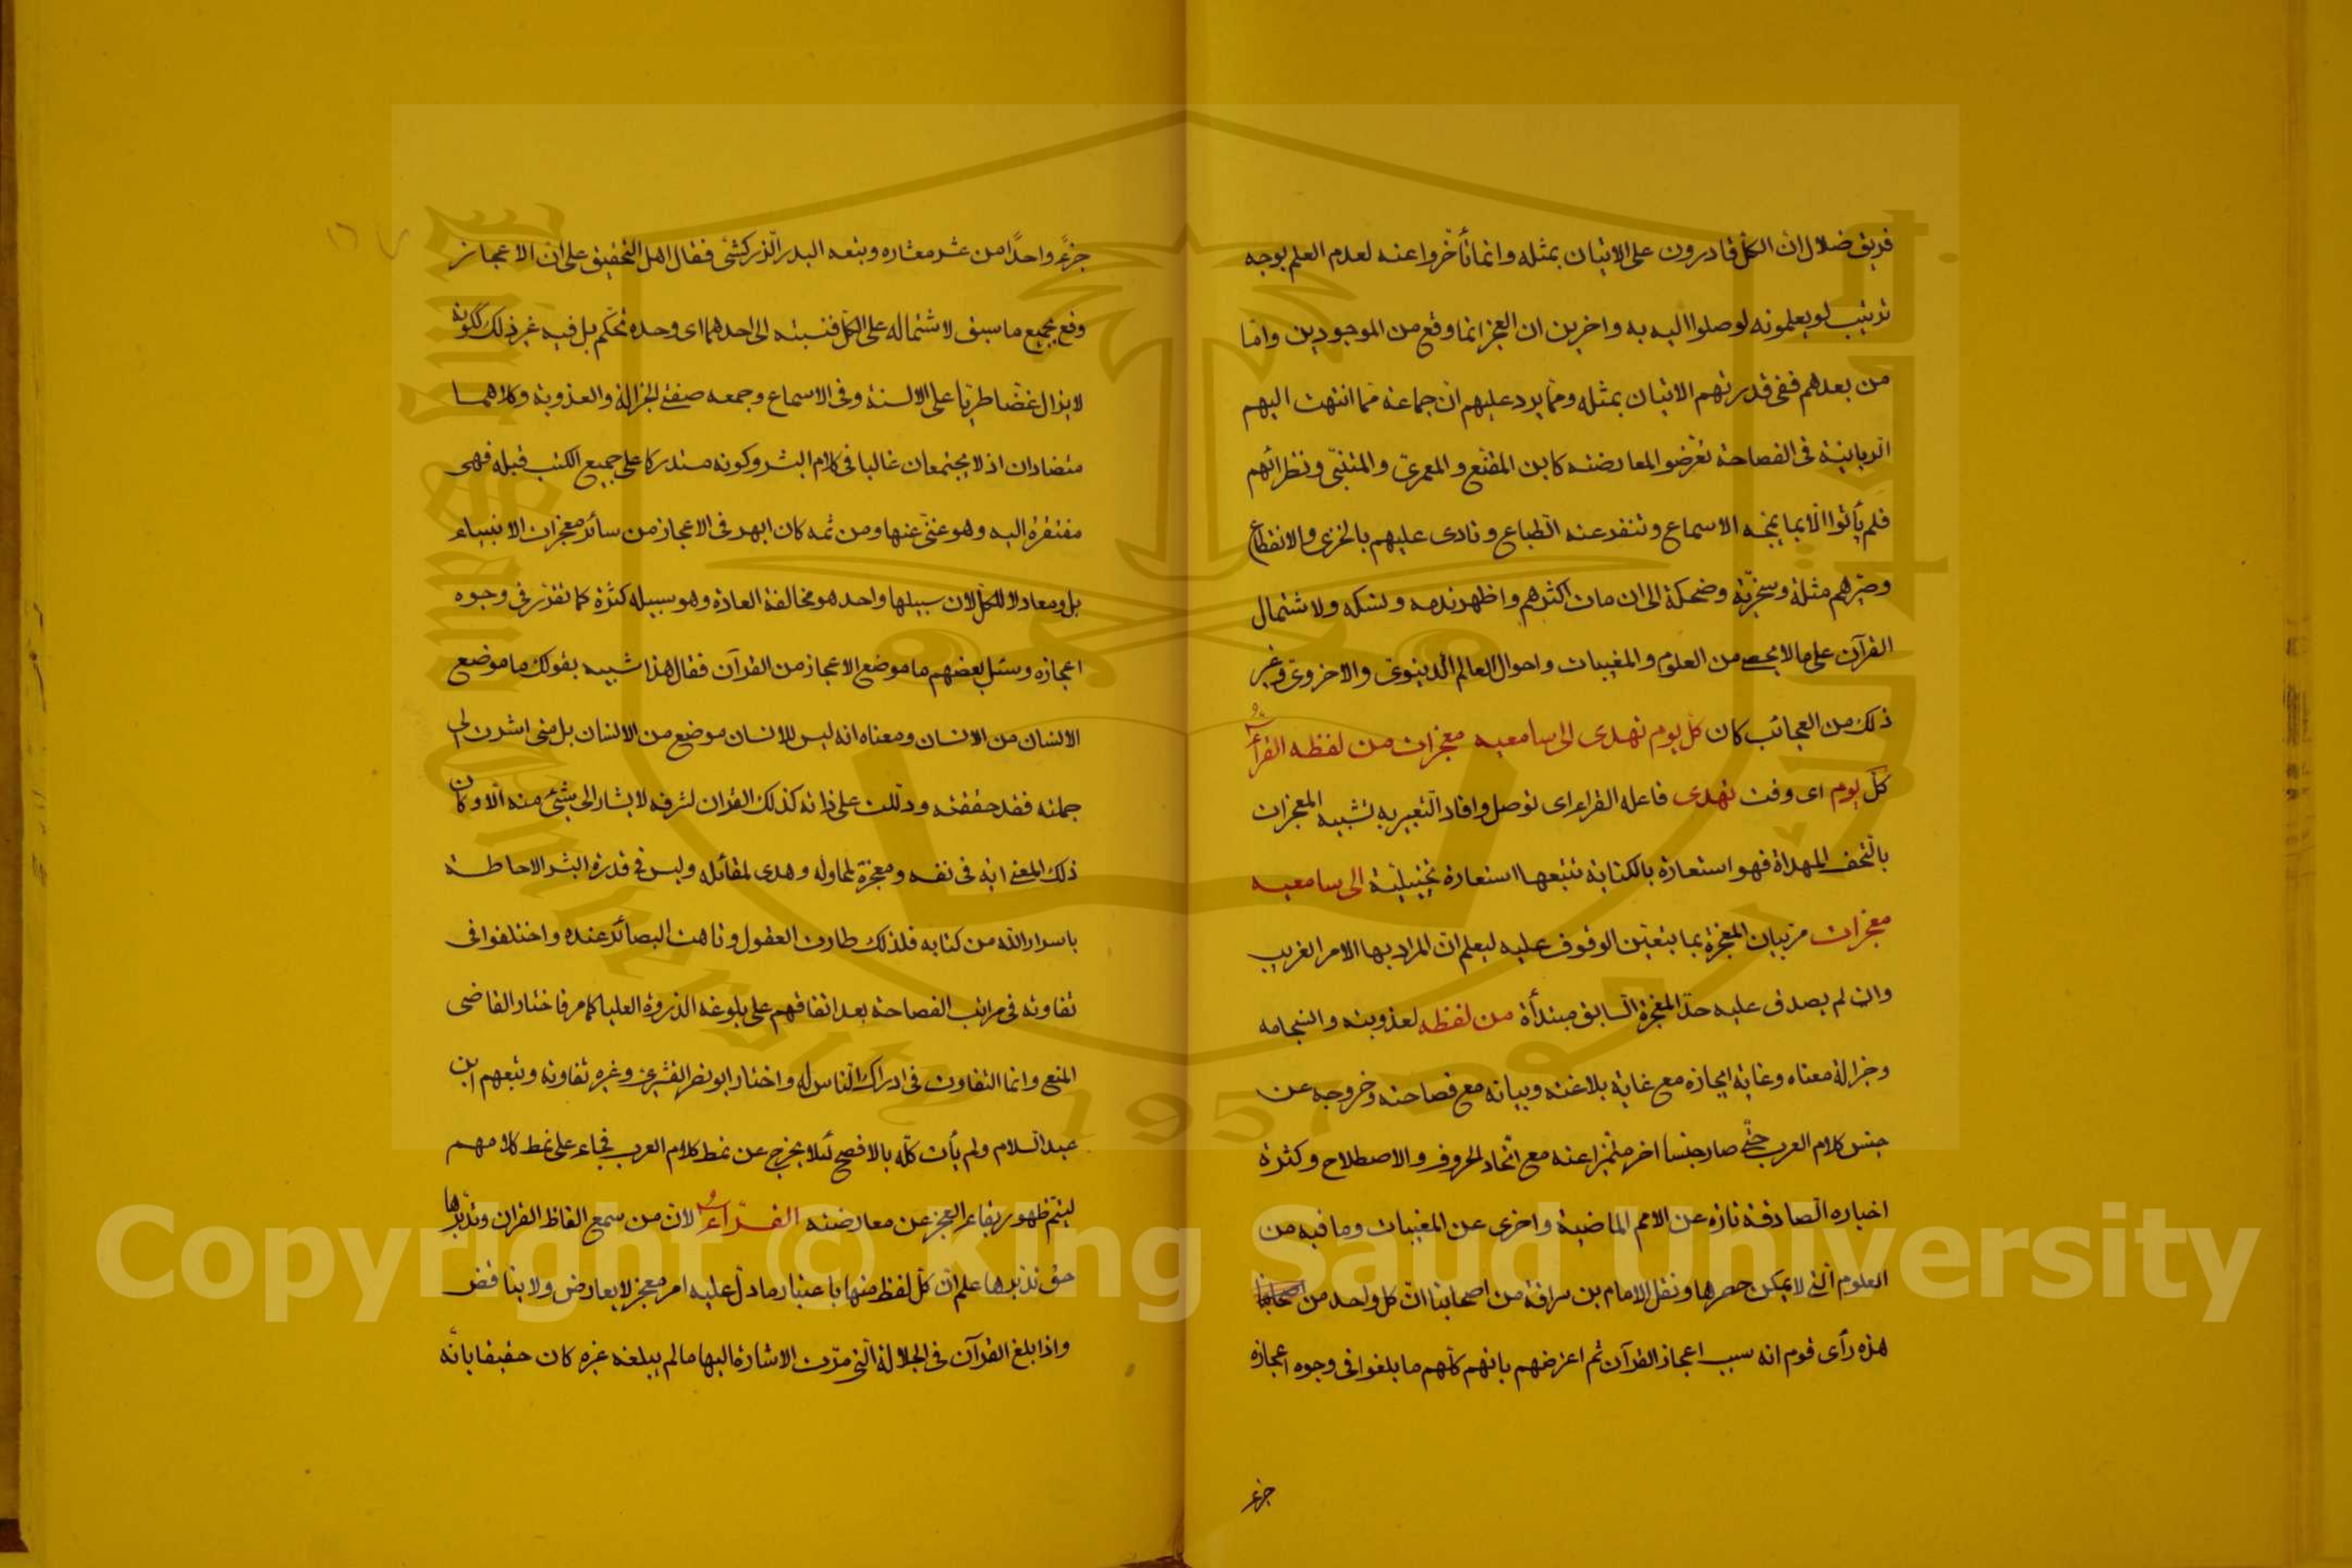 فريق ضلال ان الكل قادرون على الاتيان بمثله وانما تأخّروا عنه لعدم العلم بوجه
ترتيب لو يعلمونه لوصلوا اليه به واخرين ان العجز انما وقع من الموجودين واما
من بعدهم ففى قدرتهم الاتيان بمثله ومما يرد عليهم ان جماعة مما انتهت اليهم
فى الفصاحة تعرّضوا لمعارضته كابن المقنع والمعرى والمتنبّى ونظرائهم
فلم يأتوا الا بما يمجّه الاسماع وتنفر عنه الطباع ونادى عليهم بالخزى والانقطاع
وصيّرهم مثلة وسخريّة وضحكة الى ان مات اكثرهم واظهر ندمه ونسكه ولاشتمال
القرآن على ما لا يحصى من العلوم والمغيبات واحوال العالم الدنيوىّ والاخروىّ وغير
ذلك من العجائب كان كل يوم تهدى الى سامعيه معجزات من لفظه القراء
كلّ يوم اى وقت تهدى فاعله القراء اى توصل وافاد التعبير به تشبيه المعجزات
بالتحف المهداة فهو استعارة بالكناية تتبعها استعارة تخييليّة الى سامعيه
معجزات مر بيان المعجزة بما يتعيّن الوقوف عليه ليعلم ان المراد بها الامر الغريب
وان لم يصدق عليه حدّ المعجزة السابق مبتدأة من لفظه لعذوبته وانسجامه
وجزالة معناه وغاية ايجازه مع غاية بلاغته وبيانه مع فصاحته وخروجه عن
جنس كلام العرب حتّى صار جنسا اخر متميّزا عنه مع اتّحاد الحروف والاصطلاح وكثرة
اخباره الصادقة تارة عن الامم الماضية واخرى عن المغيبات وما فيه من
العلوم الّتى لا يمكن حصرها ونقل الامام بن سراقة من اصحابنا ان كل واحد من
هذه رأى قوم انه سبب اعجاز القرآن ثم اعترضهم بانهم كلّهم ما بلغوا فى وجوه اعجازه
جزء
جزءً واحدًا من عشر معشاره وتبعه البدر الزركشى فقال اهل التحقيق على ان الاعجاز
وقع بجميع ما سبق لاشتماله على الكلّ فنسبته الى احدهما اى وحده تحكّم بل فيه غير ذلك ككونه
لا يزال غضّا طريّا على الالسنة وفى الاسماع وجمعه صفتى الجزالة والعذوبة وكلاهما
متضادان اذ لا يجتمعان غالبا فى كلام البشر وكونه مستدركا على جميع الكتب قبله فهى
مفتقرة اليه وهو غنىّ عنها ومن ثمه كان ابهر فى الاعجاز من سائر معجزات الانبياء
بل ومعادلا للكل لان سبيلها واحد هو مخالفة العادة وهو سبيله كثرة كما تقرّر فى وجوه
اعجازه وسئل بعضهم ما موضع الاعجاز من القرآن فقال هذا شبيه بقولك ما موضع
الانسان من الانسان ومعناه انه ليس للانسان موضع من الانسان بل متى اشرت الى
جملته فقد حققته ودلّلت على ذاته كذلك القران لشرفه لا يشار الى شئ منه الّا وكان
ذلك المعنى اية فى نفسه ومعجزة لمحاوله وهدى لقائله وليس فى قدرة البشر الاحاطة
باسرار الله من كتابه فلذلك حارت العقول وتاهت البصائر عنده واختلفوا فى
تفاوته فى مراتب الفصاحة بعد اتفاقهم على بلوغه الذروة العليا كما مر فاختار القاضى
المنع وانما التفاوت فى ادراك النّاس له واختار ابو نصر القشيرى وغيره تفاوته وتبعهم ابن
عبد السلام ولم يأت كلّه بالافصح لئلا يخرج عن نمط كلام العرب فجاء على نمط كلامهم
ليتم ظهور بقاء العجز عن معارضته القرّاء لان من سمع الفاظ القران وتدبّرها
حق تدبرها علم ان كلّ لفظ منها باعتبار ما دلّ عليه امر معجز لا يعارض ولا يناقض
واذا بلغ القرآن فى الجلالة الّتى مرّت الاشارة اليها ما لم يبلغه غيره كان حقيقا بانّه
Copyright © King Saud University
King Saud University
1957